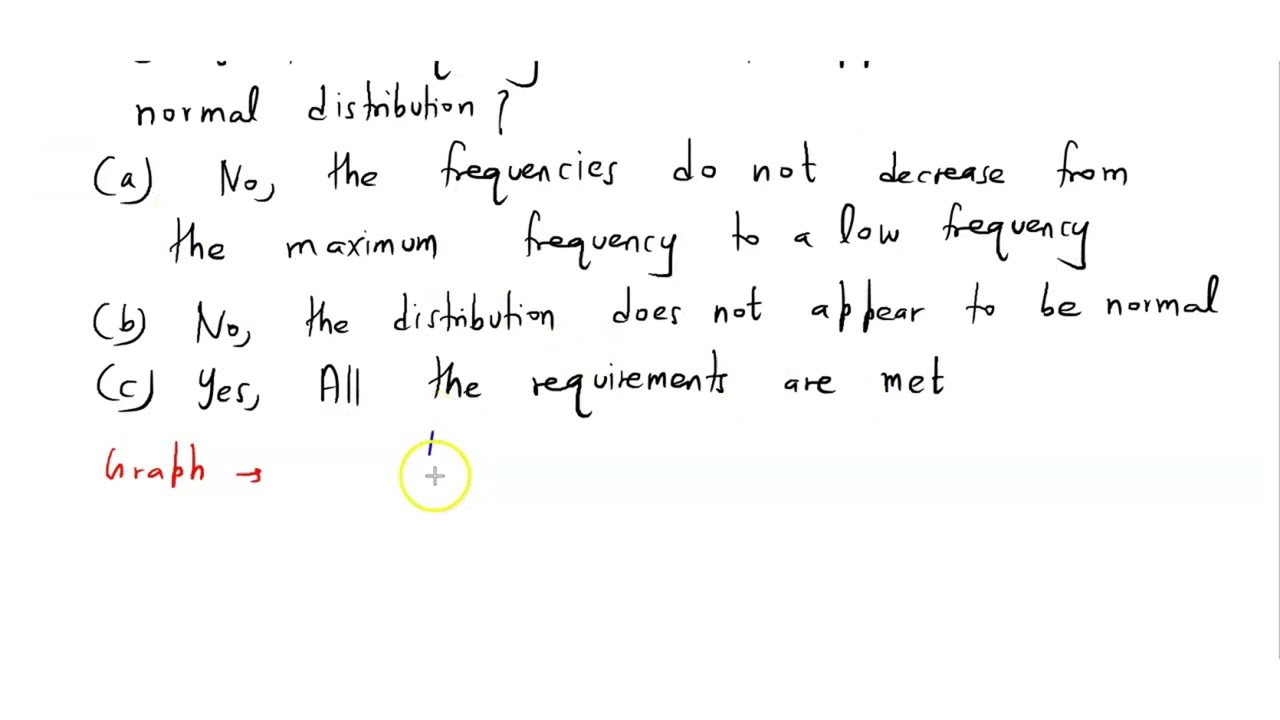 normal distribution?
(a) No, the frequencies do not decrease from
the maximum frequency to a low frequency
(b) No, the distribution does not appear to be normal
(c) Yes, All the requirements are met
Graph →